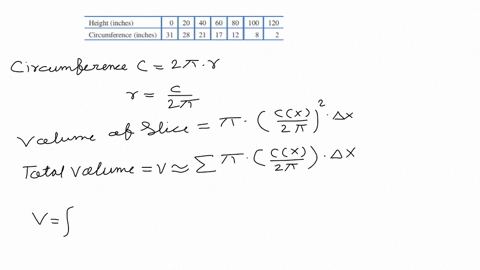 Height (inches) 0 20 40 60 80 100 120
Circumference (inches) 31 28 21 17 12 8 2
Circumference C = 2π·r
r = C/2π
Volume of Slice = π·(C(x)/2π)²·Δx
Total Volume = V ≈ Σ π·(C(x)/2π)·Δx
V = ∫